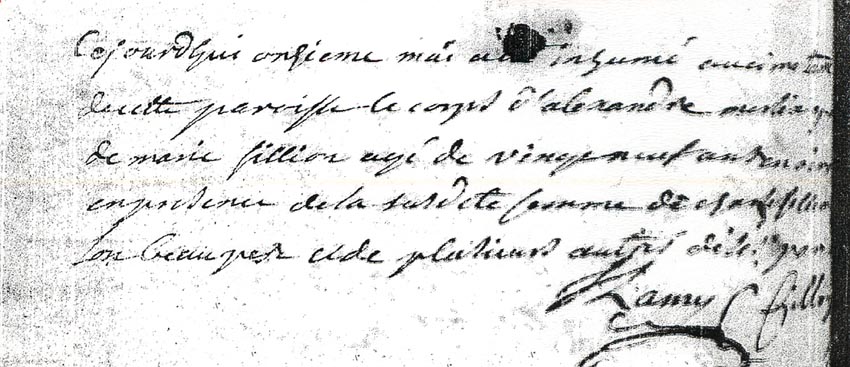 Cejourdhui onsieme mai a inhumé aucimetiere
decette paroisse le corps d'alexandre merlin
de marie fillion agé de vingt neuf ans environ
enpresence de la susdite femme de fillion
son beaupere et de plusieurs autres
Lamy fillion